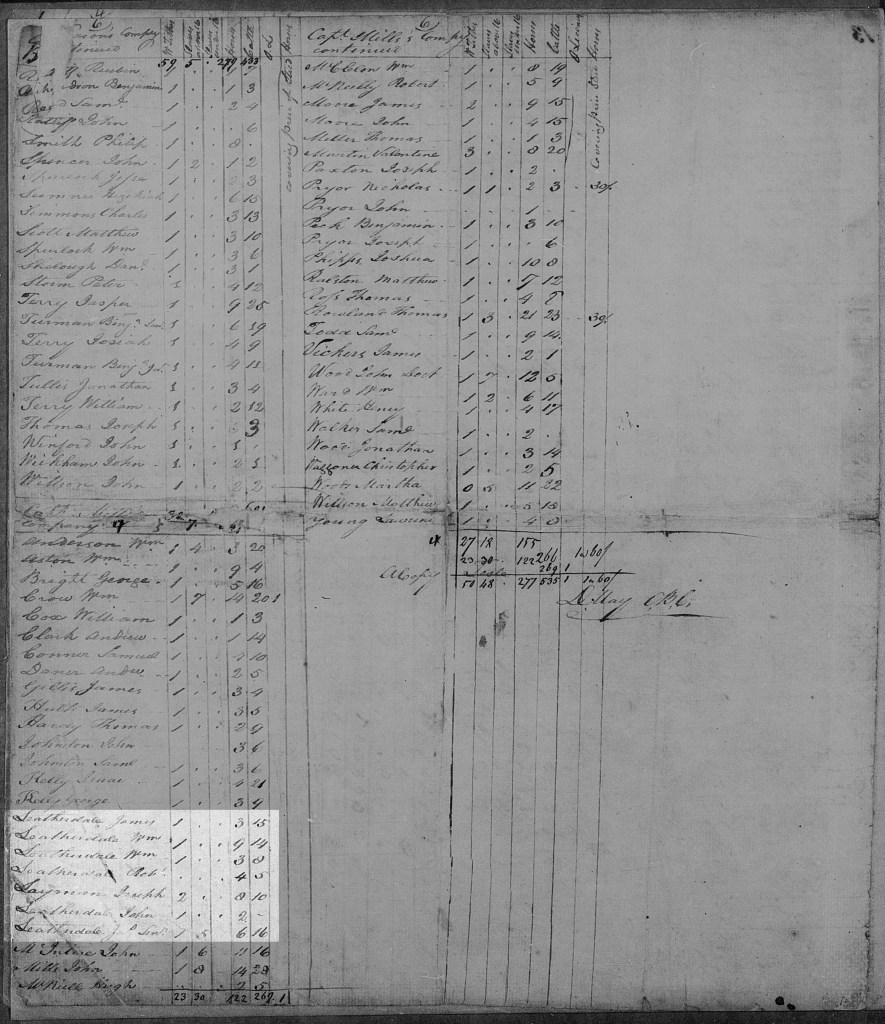 Compy
Whites
59 5 . 279 433
R. & G. Rustin
Benjamin 1 . . 1 3
Saml 1 . . 2 4
John 1 . . . 6
Smith Philip 1 . . 8 .
Spencer John 1 2 . 1 2
Spurlock
Sumner Hezekiah 1 . . 6 15
Simmons Charles 1 . . 3 13
Scott Matthew 1 . . 3 10
Spurlock Wm 1 . . 3 6
Danl 1 . . 3 1
Storm Peter 1 . . 4 12
Terry Jasper 1 . . 9 25
Turman Benjn Senr 1 . . 6 19
Terry Josiah 1 . . 4 9
Turman Benjn Jr 1 . . 4 11
Tullis Jonathan 1 . . 3 4
Terry William 1 . . 2 12
Thomas Joseph 1 . . 3
Winford John 1 . . 1 .
Wickham John 1 . . 2 1
Willson John 1 . . 2 2
Company
Anderson Wm 1 4 . 3 20
Aston Wm 1 . . 9 4
Bright George 1 . . 5 16
Crow Wm 1 7 . 14 20 1
Cox William 1 . . 1 3
Clark Andrew 1 . . 1 14
Conner Samuel 1 . . 4 10
Doner Andw 1 . . 2 5
Gillis James 1 . . 3 4
James 1 . . 3 5
Hardy Thomas 1 . . 2 9
Johnston John 3 6
Johnston Saml 1 . . 3 6
Kelly Isaac 1 . . 4 21
Kelly George 1 . . 3 4
Leatherdale James 1 . . 3 15
Leatherdale Wm 1 . . 9 14
Leatherdale Wm 1 . . 3 8
Leatherdale Robt . . 4 5
Layman Joseph 2 . . 8 10
Leatherdale John 1 . . 2 -
Leatherdale Jno Senr 1 5 . 6 16
McIntire John 1 6 . 11 16
Mills John 1 8 . 14 28
Hugh . . . 2 5
23 30 122 269 1
Capt. Mills's Compy
continued
McClen Wm 1 . . 8 19
McNeelly Robert 1 . . 5 9
Moore James 2 . . 9 15
Moore John 1 . . 4 15
Miller Thomas 1 . . 1 3
Martin Valentine 3 . . 8 20
Paxton Joseph 1 . . 2 .
Pryor Nicholas 1 1 . 2 3 . 30/
Pryor John . . . 1 .
Peck Benjamin 1 . . 3 10
Pryor Joseph 1 . . . 6
Phipps Joshua 1 . . 10 8
Ralston Matthew 1 . . 7 12
Ross Thomas 1 . . 4
Rowland Thomas 1 3 . 21 23 . 30/
Todd Saml 1 . . 9 14
Vickers James 1 . . 2 1
Wood John Doct 1 7 . 12 5
Ward Wm 1 2 . 6 11
White Henry 1 . . 4 17
Walker Saml 1 . . 2 .
Wood Jonathan 1 . . 3 14
Waggoner Christopher 1 . . 2 5
Woods Martha 0 5 . 11 22
Willson Matthew 1 . . 5 18
Young Lawrence 1 . . 4 8
27 18 155 266 1 60/
23 30 122 269 1
A Copy Teste
50 48 . 277 535 1 60/
May C.B.C.